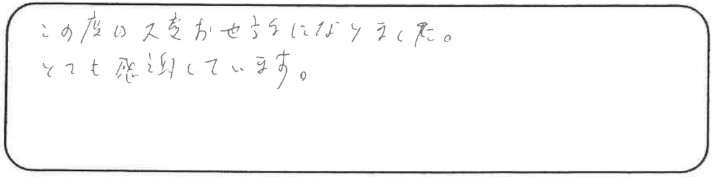 この度は大変お世話になりました。
とても感謝しています。